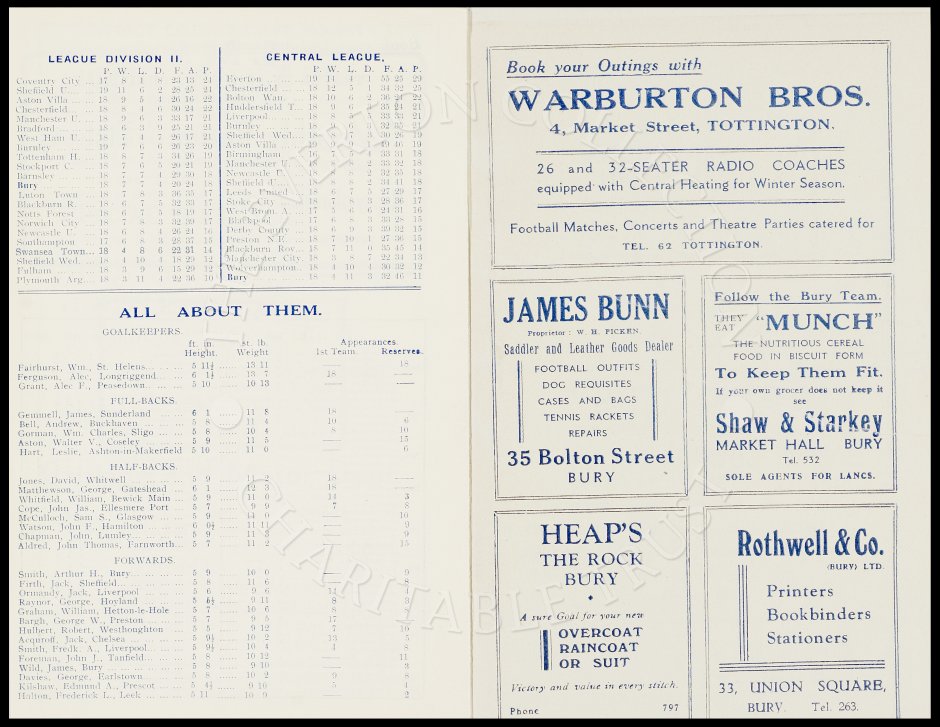 LEAGUE DIVISION II.
P. W. L. D. F. A. P.
Coventry City ... 17 8 1 8 23 13 24
Sheffield U.... 19 11 6 2 28 25 24
Aston Villa ... 18 9 5 4 26 16 22
Chesterfield ... 18 9 6 3 30 24
Manchester U. ... 18 9 6 3 33 17 21
Bradford ... 18 6 3 9 25 21 21
West Ham U... 18 8 7 3 26 17
Burnley ... 19 7 6 6 26 23 20
Tottenham H. ... 18 8 7 3 34 26 19
Stockport C. ... 18 6 20 21 19
Barnsley ... 18 7 7 4 29 30 18
Bury ... 18 7 7 4 20 24 18
Luton Town ... 18 7 8 3 36 35 17
Blackburn R. ... 18 6 7 5 32 33 17
Notts Forest ... 18 6 7 5 18 19 17
Norwich City ... 18 7 8 3 32 39 17
Newcastle U. ... 18 6 8 4 26 21 16
Southampton ... 17 6 8 3 28 37 15
Swansea Town... 18 4 8 6 22 31 14
Sheffield Wed.... 18 4 10 4 18 29 12
Fulham ... 18 3 9 6 15 29 12
Plymouth Arg.... 18 3 11 4 22 36 10
CENTRAL LEAGUE,
P. W. L. D. F. A. P.
Everton ... 19 14 4 1 55 25 29
Chesterfield ... 18 12 5 1 34 32 25
Bolton Wan... 18 10 6 2 36 24 22
Huddersfield T... 18 9 6 3 35 24 21
Liverpool... 18 8 5 5 33 33 21
Burnley ... 18 9 6 3 32 35 21
Sheffield Wed... 18 8 7 3 30 26 19
Aston Villa ... 19 9 9 1 49 46 19
Birmingham ... 16 7 5 4 33 31 18
Manchester U ... 18 8 8 2 33 32 18
Newcastle U. ... 18 8 8 2 32 35 18
Sheffield U... 18 8 8 2 34 41 18
Leeds United ... 18 6 7 5 27 29 17
Stoke City ... 18 7 8 3 28 36 17
West Brom. A. ... 17 5 6 6 24 31 16
Blackpool ... 17 6 8 3 33 28 15
Derby County ... 18 6 9 3 39 32 15
Preston N.E. ... 18 7 10 1 27 36 15
Blackburn Rov... 18 7 11 0 35 45 14
Manchester City. 18 3 8 7 22 34 13
Wolverhampton.. 18 4 10 4 30 32 12
Bury ... 18 4 11 3 32 46 11
ALL ABOUT THEM.
GOALKEEPERS.
ft. in. st. lb. Appearances.
Height. Weight 1st Team. Reserves.
Fairhurst, Wm., St. Helens... 5 11½ ... 13 11 — 18
Ferguson, Alec, Longriggend... 6 1½ ... 13 7 18 —
Grant, Alec F., Peasedown... 5 10 ... 10 13
FULL-BACKS.
Gemmell, James, Sunderland ... 6 1 ... 11 8 18 —
Bell, Andrew, Buckhaven ... 5 8 ... 11 4 10 6
Gorman, Wm. Charles, Sligo ... 5 8 ... 10 4 8 10
Aston, Walter V., Coseley ... 5 9 ... 11 5 — 15
Hart, Leslie, Ashton-in-Makerfield 5 10 ... 11 0 — 6
HALF-BACKS.
Jones, David, Whitwell ... 5 9 ... 11 2 18 —
Matthewson, George, Gateshead ... 6 1 ... 12 3 18 —
Whitfield, William, Bewick Main ... 5 9 ... 11 0 14 3
Cope, John Jas., Ellesmere Port ... 5 7 ... 9 9 7 8
McCulloch, Sam S., Glasgow ... 5 9 ... 11 0 4 10
Watson, John F., Hamilton ... 6 0½ ... 11 11 — 9
Chapman, John, Lumley... 5 9 ... 11 3 — 9
Aldred, John Thomas, Farnworth... 5 7 ... 11 2 — 15
FORWARDS.
Smith, Arthur H., Bury... 5 9 ... 10 0 — 9
Firth, Jack, Sheffield... 5 8 ... 11 6 8
Ormandy, Jack, Liverpool ... 5 6 ... 9 6 14 3
Raynor, George, Hoyland ... 5 6½ ... 9 11 8
Graham, William, Hetton-le-Hole ... 5 7 ... 10 6 8
Bargh, George W., Preston ... 5 7 ... 9 5 17
Hulbert, Robert, Westhoughton ... 5 5 ... 9 12 7 10
Acquroff, Jack, Chelsea ... 5 9½ ... 10 2 13 5
Smith, Fredk. A., Liverpool... 5 9½ ... 10 4 4 8
Foreman, John J., Tanfield... 5 8 ... 10 12 — 11
Wild, James, Bury ... 5 8 ... 9 10 — 3
Davies, George, Earlstown... 5 8 ... 10 2 9 8
Kilshaw, Edmund A., Prescot ... 5 4½ ... 9 10 5 4
Halton, Frederick L., Leek ... 5 11 ... 10 9 — 2
Book your Outings with
WARBURTON BROS.
4, Market Street, TOTTINGTON.
26 and 32-SEATER RADIO COACHES
equipped with Central Heating for Winter Season.
Football Matches, Concerts and Theatre Parties catered for
TEL. 62 TOTTINGTON.
JAMES BUNN
Proprietor : W. H. PICKEN.
Saddler and Leather Goods Dealer
FOOTBALL OUTFITS
DOG REQUISITES
CASES AND BAGS
TENNIS RACKETS
REPAIRS
35 Bolton Street
BURY
Follow the Bury Team.
THEY EAT "MUNCH"
THE NUTRITIOUS CEREAL
FOOD IN BISCUIT FORM
To Keep Them Fit.
If your own grocer does not keep it
see
Shaw & Starkey
MARKET HALL BURY
Tel. 532
SOLE AGENTS FOR LANCS.
HEAP'S
THE ROCK
BURY
A sure Goal for your new
OVERCOAT
RAINCOAT
OR SUIT
Victory and value in every stitch.
Phone 797
Rothwell & Co.
(BURY) LTD.
Printers
Bookbinders
Stationers
33, UNION SQUARE,
BURY. Tel. 263.